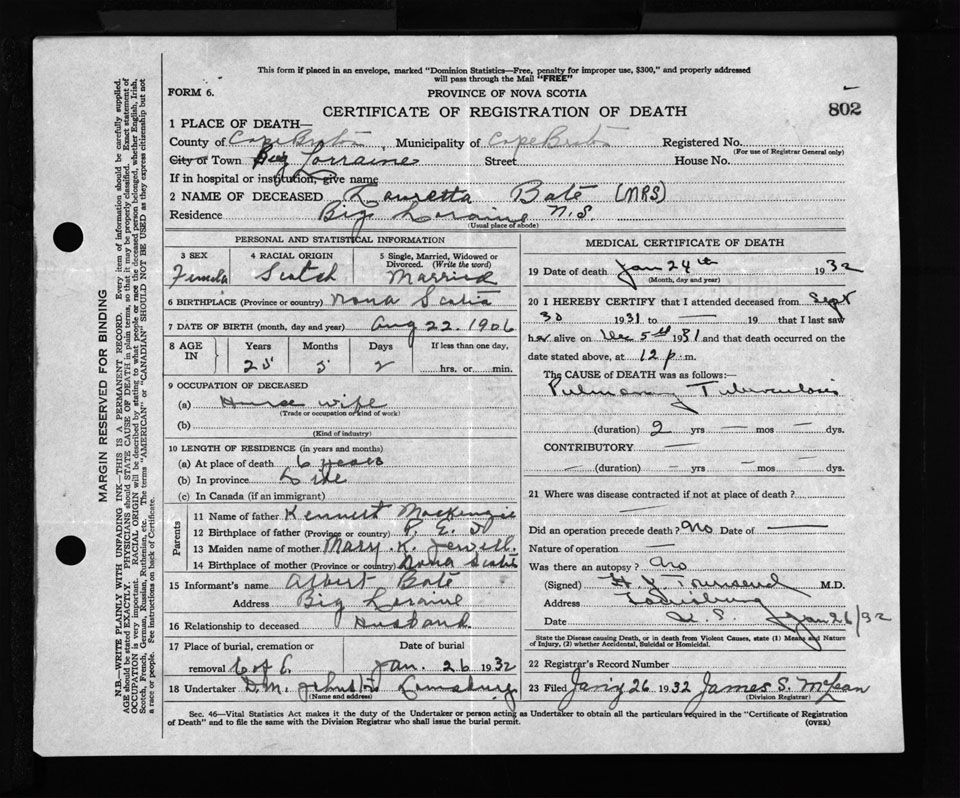 This form if placed in an envelope, marked "Dominion Statistics—Free, penalty for improper use, $300," and properly addressed
will pass through the Mail "FREE"
FORM 6.
PROVINCE OF NOVA SCOTIA
802
CERTIFICATE OF REGISTRATION OF DEATH
1 PLACE OF DEATH—
County of Cape Breton, Municipality of Cape Breton Registered No.
(For use of Registrar General only)
City or Town Big Lorraine Street House No.
If in hospital or institution, give name
2 NAME OF DECEASED Lauretta Bate (MRS)
Residence Big Loraine N.S
(Usual place of abode)
PERSONAL AND STATISTICAL INFORMATION
3 SEX Female
4 RACIAL ORIGIN Scotch
5 Single, Married, Widowed or
Divorced. (Write the word)
Married
6 BIRTHPLACE (Province or country) Nova Scotia
7 DATE OF BIRTH (month, day and year) Aug 22. 1906
8 AGE IN
Years Months Days If less than one day,
25 5 2 hrs. or min.
9 OCCUPATION OF DECEASED
(a) House wife
(Trade or occupation or kind of work)
(b)
(Kind of industry)
10 LENGTH OF RESIDENCE (in years and months)
(a) At place of death 6 years
(b) In province Life
(c) In Canada (if an immigrant)
Parents
11 Name of father Kennert MacKenzie
12 Birthplace of father (Province or country) P. E. I
13 Maiden name of mother Mary K. Jewell.
14 Birthplace of mother (Province or country) Nova Scotia
15 Informant's name Albert Bate
Address Big Loraine
16 Relationship to deceased Husband
17 Place of burial, cremation or Date of burial
removal C of E. Jan. 26 1932
18 Undertaker D.M. Johnston
(Name and address)
MEDICAL CERTIFICATE OF DEATH
19 Date of death Jan 24th 1932
(Month, day and year)
20 I HEREBY CERTIFY that I attended deceased from Sept
30 1931 to — 19 that I last saw
her alive on Dec 5th 1931 and that death occurred on the
date stated above, at 12 p.m.
The CAUSE OF DEATH was as follows:—
Pulmonary Tuberculosis
(duration) 2 yrs — mos — dys.
CONTRIBUTORY —
— (duration) — yrs — mos — dys.
21 Where was disease contracted if not at place of death?
—
Did an operation precede death? No Date of —
Nature of operation —
Was there an autopsy? No
(Signed) Townsend M.D.
Address Louisburg
Date N.S. Jan 26/32
State the Disease causing Death, or in death from Violent Causes, state (1) Means and Nature
of Injury, (2) whether Accidental, Suicidal or Homicidal.
22 Registrar's Record Number
23 Filed 26 1932 James S. McLean
(Division Registrar)
Sec. 46—Vital Statistics Act makes it the duty of the Undertaker or person acting as Undertaker to obtain all the particulars required in the "Certificate of Registration
of Death" and to file the same with the Division Registrar who shall issue the burial permit.
(OVER)
MARGIN RESERVED FOR BINDING
N.B.—WRITE PLAINLY WITH UNFADING INK—THIS IS A PERMANENT RECORD. Every item of information should be carefully supplied.
AGE should be stated EXACTLY. PHYSICIANS should STATE CAUSE OF DEATH in plain terms, that it may be properly classified. Exact statement of
OCCUPATION is very important. RACIAL ORIGIN will be described by stating to what people or race the deceased person belonged, whether English, Irish,
Scotch, French, German, Russian, Ruthenian, etc. The terms "AMERICAN" or "CANADIAN" SHOULD NOT BE USED as they express citizenship but not
a race or people. See instructions on back of Certificate.